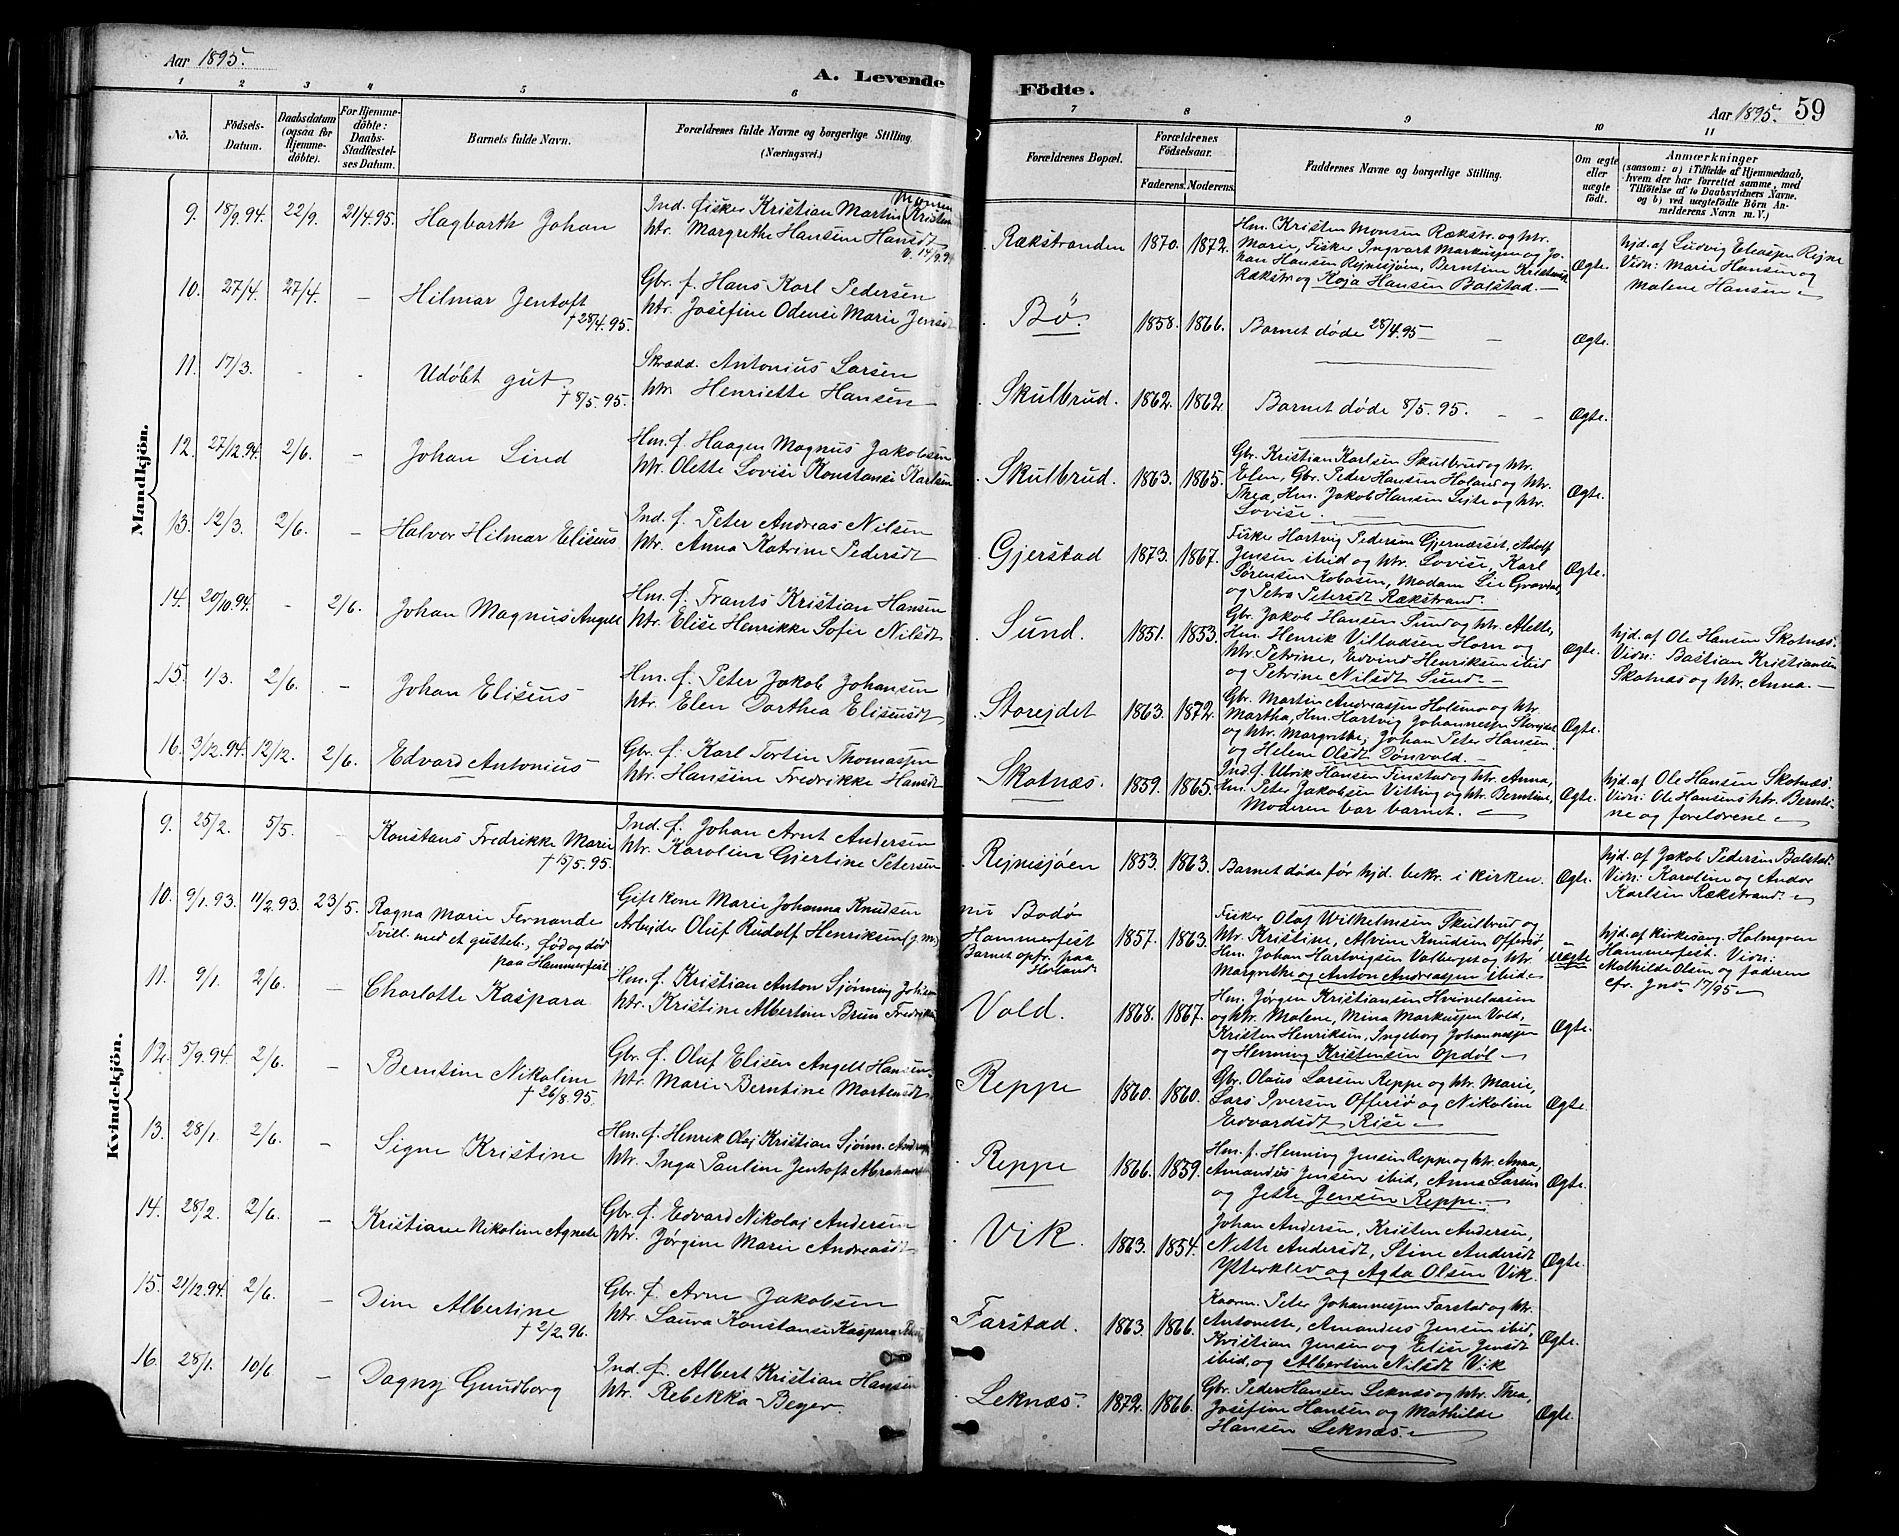 Aar 1895.
A. Levende
1 2 3 4 5 6
No.
Fødsels-
Datum.
Daabsdatum
(ogsaa for
Hjemme-
døbte).
For Hjemme-
døbte:
Daabs-
Stadfæstel-
ses Datum.
Barnets fulde Navn.
Forældrenes fulde Navne og borgerlige Stilling.
(Næringsvei.)
Mandkjön.
9. 18/9.94. 22/9. 21/4.95. Hagbarth Johan
Ind. fisker Kristian Martin
Htr. Margrethe Hansen Hansdt
10. 27/4. 27/4. – Hilmar Jentoft
† 28/4.95.
Gbr. f. Hans Karl Pedersen
Htr. Josefine Odense Marie Jensdt
11. 17/3. - - Udøbt gut.
† 8/5.95.
Skrædd. Antonius Larsen
Htr. Henriette Hansen
12. 27/12.94. 2/6. – Johan Lind
Hm. f. Haagen Magnus Jakobsen
Htr. Olette Lovise Konstanse Karlsen
13. 12/3. 2/6. – Halvor Hilmar Elisæus
Ind. f. Peter Andreas Nilsen
Htr. Anna Katrine Pedersdt
14. 20/10.94. - 2/6. Johan Magnus Angell
Hm. f. Frants Kristian Hansen
Htr. Elise Henrikke Sofie Nilsdt
15. 1/3. 2/6. – Johan Elisæus
Hm. f. Peter Jakob Johansen
Htr. Elen Dorthea Elisæusdt
16. 3/12.94. 12/12. 2/6. Edvard Antonius
Gbr. f. Karl Tortin Thomassen
Htr. Hansine Fredrikke Hansdt
Kvindekjön.
9. 25/2. 5/5. – Konstans Fredrikke Marie
† 15/5.95.
Ind. f. Johan Arnt Andersen
Htr. Karoline Gjertine Petersen
10. 9/1.93. 11/2.93. 23/5. Ragna Marie Fernande
Tvill. med et gutteb., fød og død
paa Hammerfest
Gift kone Marie Johanna Knudsen
Arbejder Oluf Rudolf Henriksen (g.m.)
11. 9/1. 2/6. – Charlotte Kaspara
Hm. f. Kristian Anton Sjønning
Htr. Kristine Albertine Brun
12. 5/9.94. 2/6. – Berntine Nikoline
† 26/8.95.
Gbr. f. Oluf Elisen Angell Hansen
Htr. Marie Berntine Mortensdt
13. 28/1. 2/6. – Signe Kristine
Hm. f. Henrik Olaj Kristian Sjønn.
Htr. Inga Pauline Jentoft
14. 28/2. 2/6. – Kristiane Nikoline Agnete
Gbr. f. Edvard Nikolaj Andersen
Htr. Jørgine Marie Andreasdt
15. 21/12.94. 2/6. – Dine Albertine
† 2/2.96.
Gbr. f. Arne Jakobsen
Htr. Laura Konstanse Kaspara
16. 28/1. 10/6 – Dagny Gundborg
Ind. f. Albert Kristian Hansen
Htr. Rebekka Beyer.
Fødte.
Aar 1895. 59
7 8 9 10 11
Forældrenes Bopæl.
Forældrenes
Fødselsaar.
Faderens. Moderens.
Faddernes Navne og borgerlige Stilling.
Om ægte
eller
uægte
født.
Anmærkninger
(saasom: a) i Tilfælde af Hjemmedaab,
hvem der har forrettet samme, med
Tilføielse af to Daabsvidners Navne,
og b) ved uægtefødte Børn An-
melderens Navn m. V.)
Rækstranden 1870. 1872.
Hm. Kristen Monsen Rækstr. og htr.
Marie, Fisker Ingvart Markussen og Jo-
han Hansen Rejnesjøen, Berntine
Rækstr. og Kaja Hansen Balstad. –
Ægte.
hjd. af Ludvig Eleasen Rejne
Vidn: Marie Hansen og
Malene Hansen
Bø. 1858. 1866. Barnet døde 28/4.95 – Ægte.
Skulbrud. 1862. 1862. Barnet døde 8/5.95. – Ægte.
Skulbrud. 1863. 1865.
Gbr. Kristian Karlsen Skulbrud og htr.
Elen, Gbr. Peder Hansen Holand og htr.
Thea, Hm. Jakob Hansen Lejte og htr.
Lovise.
Ægte.
Gjerstad 1873. 1867.
Fisker Hartvig Pedersen Gjernæsset, Adolf
Jensen ibid og htr. Lovise, Karl
Sørensen Kobosen, Madam Lie Gravdal,
og Petra Petersdt Rækstrand.
Ægte.
Sund. 1851. 1853.
Gbr. Jakob Hansen Sund og htr. Alette,
Hm. Henrik Villadsen Horn og
htr. Petrine, Edvind Henriksen ibid
og Petrine Nilsdt Sund. –
Ægte.
hjd. af Ole Hansen Skotnæs.
Vidn: Bastian Kristiansen
Skotnæs og htr. Anna. –
Storejdet 1863. 1872.
Gbr. Martin Andreassen Holsmo og htr.
Martha, Hm. Hartvig Johannessen Storejdet
og htr. Margrethe, Johan Peter Hansen
og Helene Olsdt Dønvold. –
Ægte.
Skotnæs. 1859. 1865.
Ind. f. Ulrik Hansen Finstad og htr. Anna,
Hm. Peter Jakobsen Vitting og htr. Berntine,
Moderen bar barnet.
Ægte.
hjd. af Ole Hansen Skotnæs.
Vidn: Ole Hansens htr. Bernti-
ne og forældrene
Rejnesjøen 1853. 1863. Barnet døde før hjd. bekr. i kirken. Ægte.
hjd. af Jakob Pedersen Balstad.
Vidn: Karoline og Andor
Karlsen Rækstrand.
nu Bodø
Hammerfest
Barnet opfr. paa
Holand
1857. 1863.
Fisker Olaj Wilhelmsen Skulbrud og
htr. Kristine, Alvine Knudsen Offersø,
Hm. Johan Hartvigsen Valberget og htr.
Margrethe og Anton Andreassen ibid.
uægte
hjd. af kirkesang. Holmgren
Hammerfest. Vidn:
Mathilde Olsen og faderen
cfr. Jnr. 17/95
Vold. 1868. 1867.
Hm. Jørgen Kristiansen
og htr. Malene, Mina Markussen Vold,
Kristen Henriksen, Ingeborg Johannessen
og Henning Kristensen Opdøl
Ægte.
Reppe 1860. 1860.
Gbr. Olaus Larsen Reppe og htr. Marie,
Lars Iversen Offersø og Nikoline
Edvardsdt Rise
Ægte.
Reppe 1866. 1859.
Hm. f. Henning Jensen Reppe og htr. Anna,
Amandus Jensen ibid, Anna Larsen
og Jette Jensen Reppe.
Ægte.
Vik. 1863. 1854.
Johan Andersen, Kristen Andersen,
Nette Andersdt, Stine Andersdt
Ytterklev og Agda Olsen Vik.
Ægte.
Farstad. 1863. 1866.
Kaarm. Peter Johannessen Farstad og htr.
Antonette, Amandus Jensen ibid,
Kristian Jensen og Elise Jensdt
ibid, og Albertine Nilsdt Vik
Ægte.
Leknæs. 1872. 1866.
Gbr. Peder Hansen Leknæs og htr. Thea,
Josefine Hansen og Mathilde
Hansen Leknæs.
Ægte.